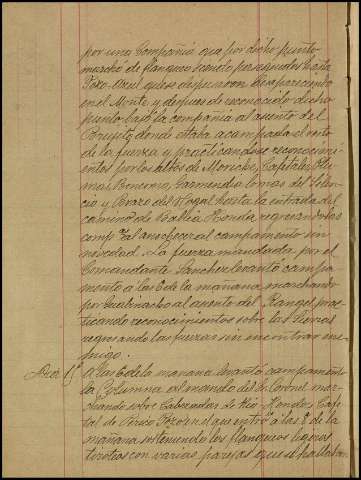 por una Compañia que por dicho punto
marchó de flanqueo siendo perseguidos hasta
Pozo Azul que se dispersaron desapareciendo
en el Monte y despues de reconocido dicho
punto bajó la compañia al asiento del
donde estaba acampada el resto
de la fuerza y practicandose reconocimi
entos por los altos de Morickes, Cafetales
mas, Bencomo, Garmendia lomas del Silen
cio y Brazo del Nogal hasta la entrada del
camino de Bahia Honda regresando las
comp.as al anochecer al campamento sin
novedad. La fuerza mandada por el
Comandante Sanchez levantó campa
mento a las 6 de la mañana marchando
por al asiento del Rangel prac
ticando reconocimientos sobre las Sierras
regresando las fuerzas sin encontrar ene
migo.
Dia 15 A las 6 de la mañana levantó campamento
la Columna al mando del Te Coronel mar
chando sobre Cabezadas de Rio Hondo, Cafe
tal de en el que entró a las 8 de la
mañana sosteniendo los flanqueos ligeros
tiroteos con varias parejas que se hallaban